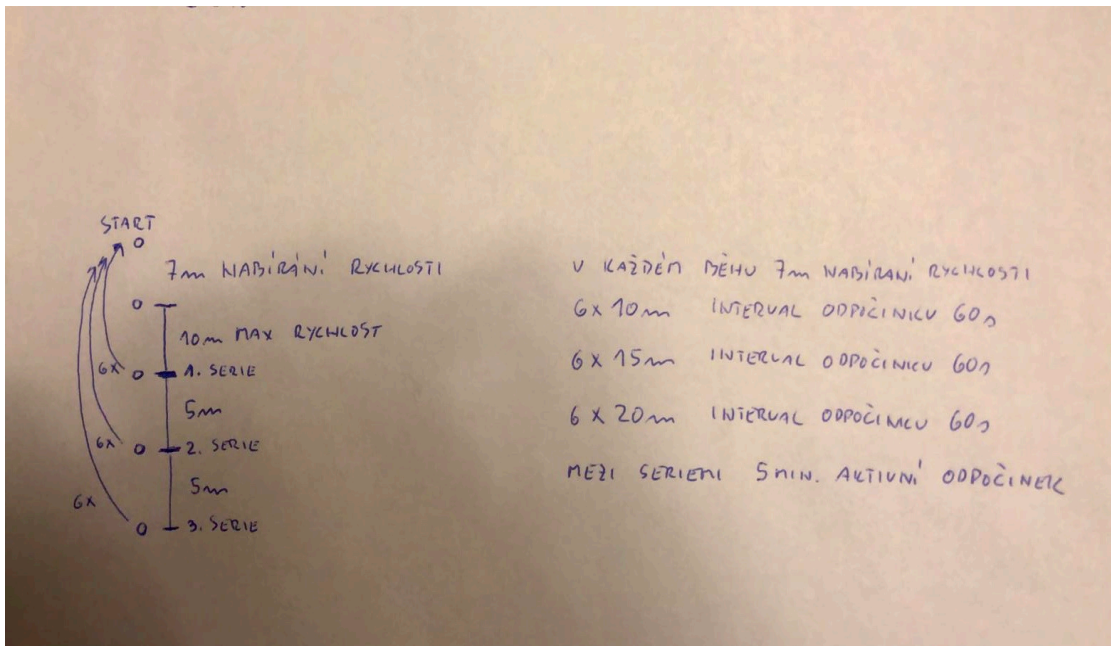 START
7m NABÍRÁNÍ RYCHLOSTI
10m MAX RYCHLOST
6x 1. SERIE
5m
6x 2. SERIE
5m
6x
3. SERIE
V KAŽDÉM BĚHU 7m NABÍRANÍ RYCHLOSTI
6x 10m INTERVAL ODPOČINKU 60s
6 x 15m INTERVAL ODPOČINKU 60s
6 x 20m INTERVAL ODPOČINKU 60s
MEZI SERIEMI 5MIN. AKTIVNÍ ODPOČINEK